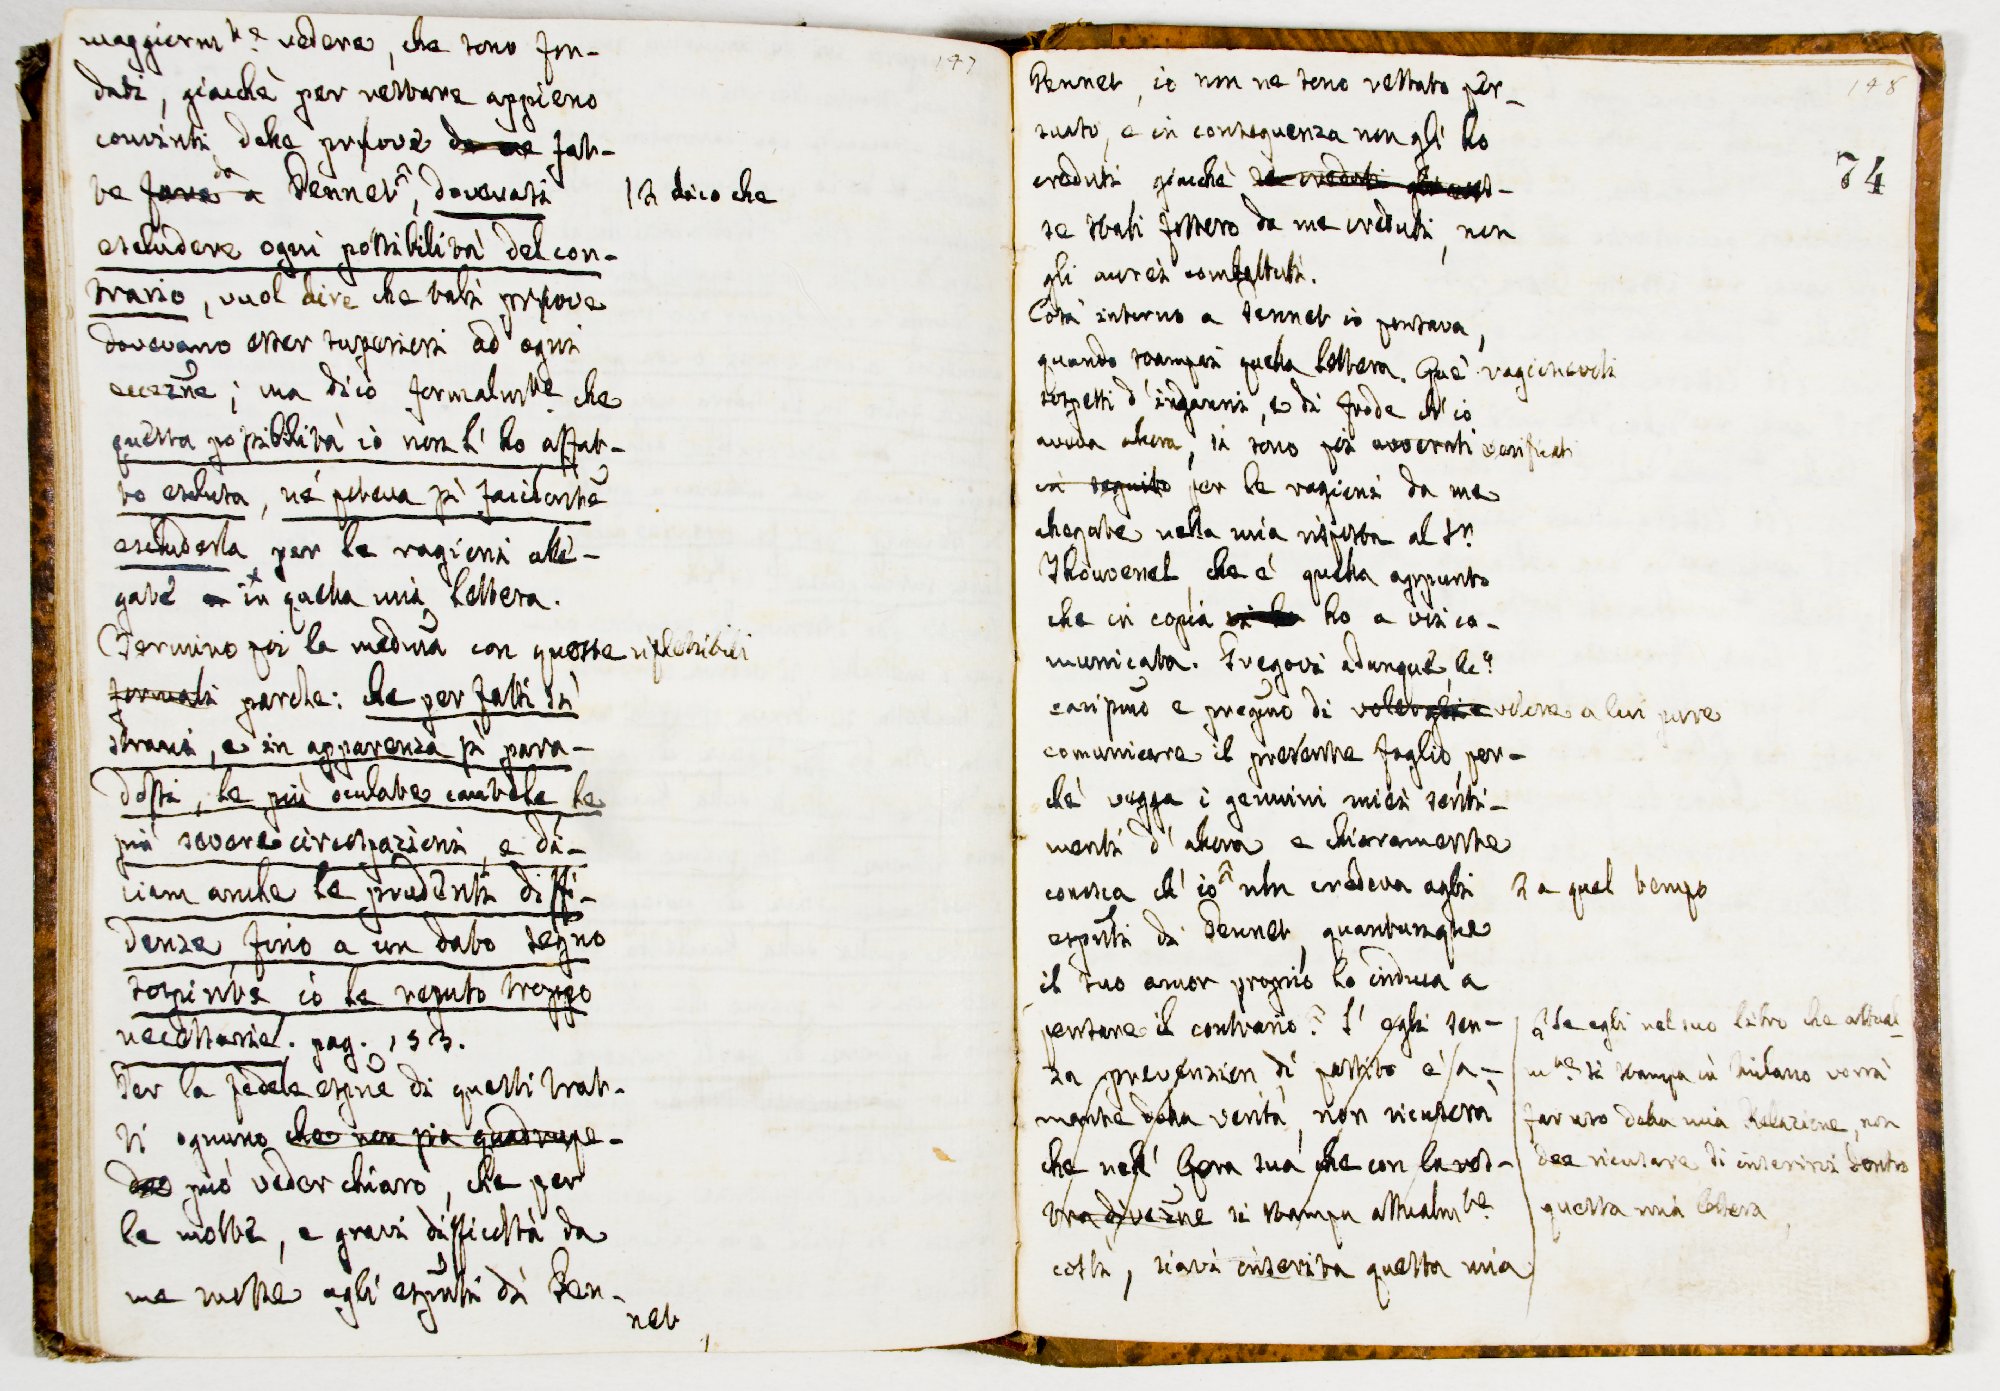 147
maggiorm.te vedere, che sono fon-
dati, giacchè per restare appieno
convinti delle pruove da me fat-
te fare a da Pennet, dovevasi
| Si dico che
escludere ogni possibilità del con-
trario, vuol dire che tali pruove
dovevano esser superiori ad ogni
eccezne; ma dico formalmte che
questa possibilità io non l'ho affat-
to esclusa, nè poteva sì facilmte
escluderla per le ragioni alle-
gate in quella mia lettera.
Termino poi la medma con queste riflessibili
formali parole: che per fatti sì
strani, e in apparenza sì para-
dossi, le più oculate cautele le
più severe circospezioni, e di-
ciam anche le prudenti diffi-
denze fino a un dato segno
sospinte io le reputo troppo
necessarie. pag. 153.
Per la fedele espne di questi trat-
ti ognuno che non sia quadrupe-
de può veder chiaro, che per
le molte, e gravi difficoltà da
me mosse agli esputi di Pen-
net
148
74
Pennet, io non ne sono restato per-
suaso, e in conseguenza non gli ho
creduti giacchè
se tali fossero da me creduti, non
gli aurei combattuti.
Così intorno a Pennet io pensava,
quando stampai quella lettera. Que' ragionevoli
sospetti d'inganni, e di frode ch'io
aveva allora, si sono poi avverati verificati
in seguito per le ragioni da me
allegate nella mia risposta al Sr.
Thouvenel, che è quella appunto
che in copia vi ho ho a voi co-
municata. Pregovi adunque,
carissmo e pregmo di volergli volere a lui pure
comunicare il presente foglio, per-
chè vegga i genuini miei senti-
menti d'allora e chiaramente
conosca ch'io non credeva agli
2 a quel tempo
esputi di Pennet, quantunque
il suo amor proprio lo induca a
pensare il contrario. S' egli sen-
za prevenzion di partito è a-
mante della verità, non ricuserà
che nell' Opera sua che con la vos-
tra direzne si stampa attualmte
costì, siavi inserita questa mia
Se egli nel suo libro che attual-
mte si stampa in Milano vorrà
far uso della mia Relazione, non
dee ricusare di inserirvi dentro
questa mia lettera